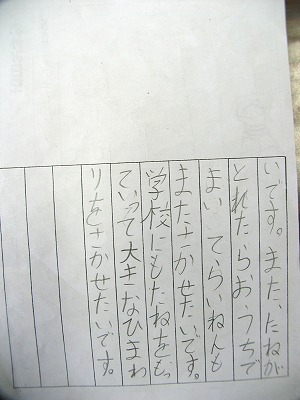 いです。また、たねが
とれたらおうちで
まいてらいねんも
またさかせたいです。
学校にもたねをもっ
ていって大きなひまわ
りをさかせたいです。